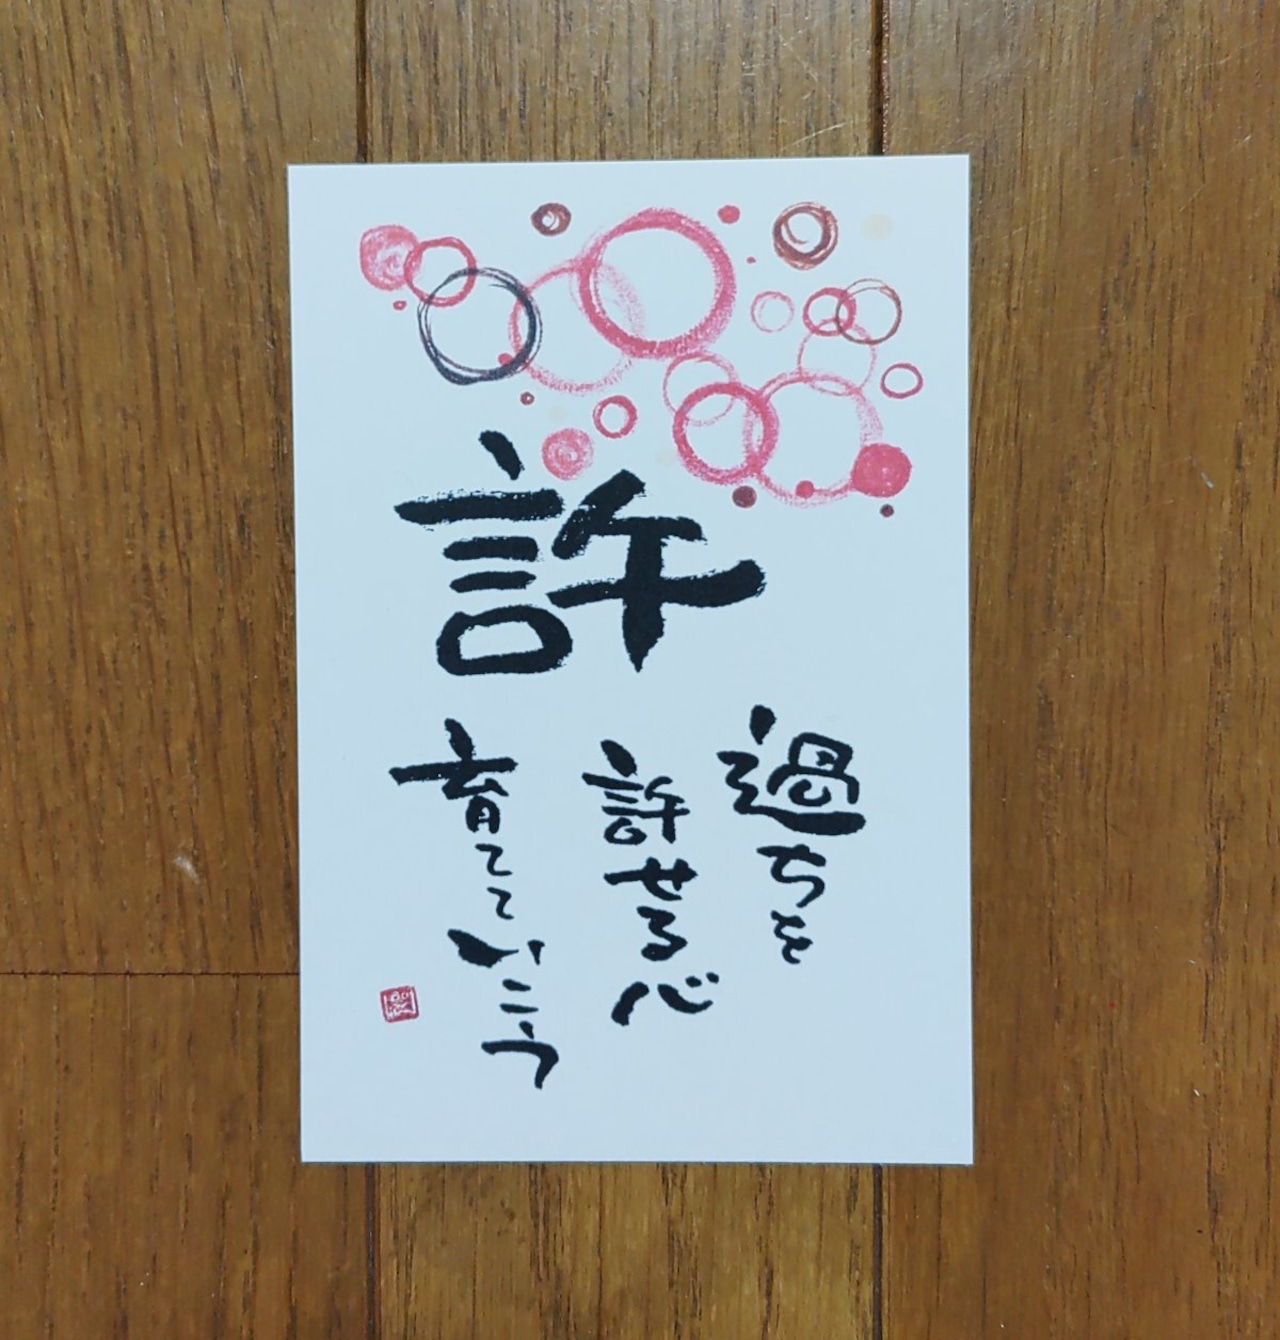 許
過ちを
許せる心
育てていこう